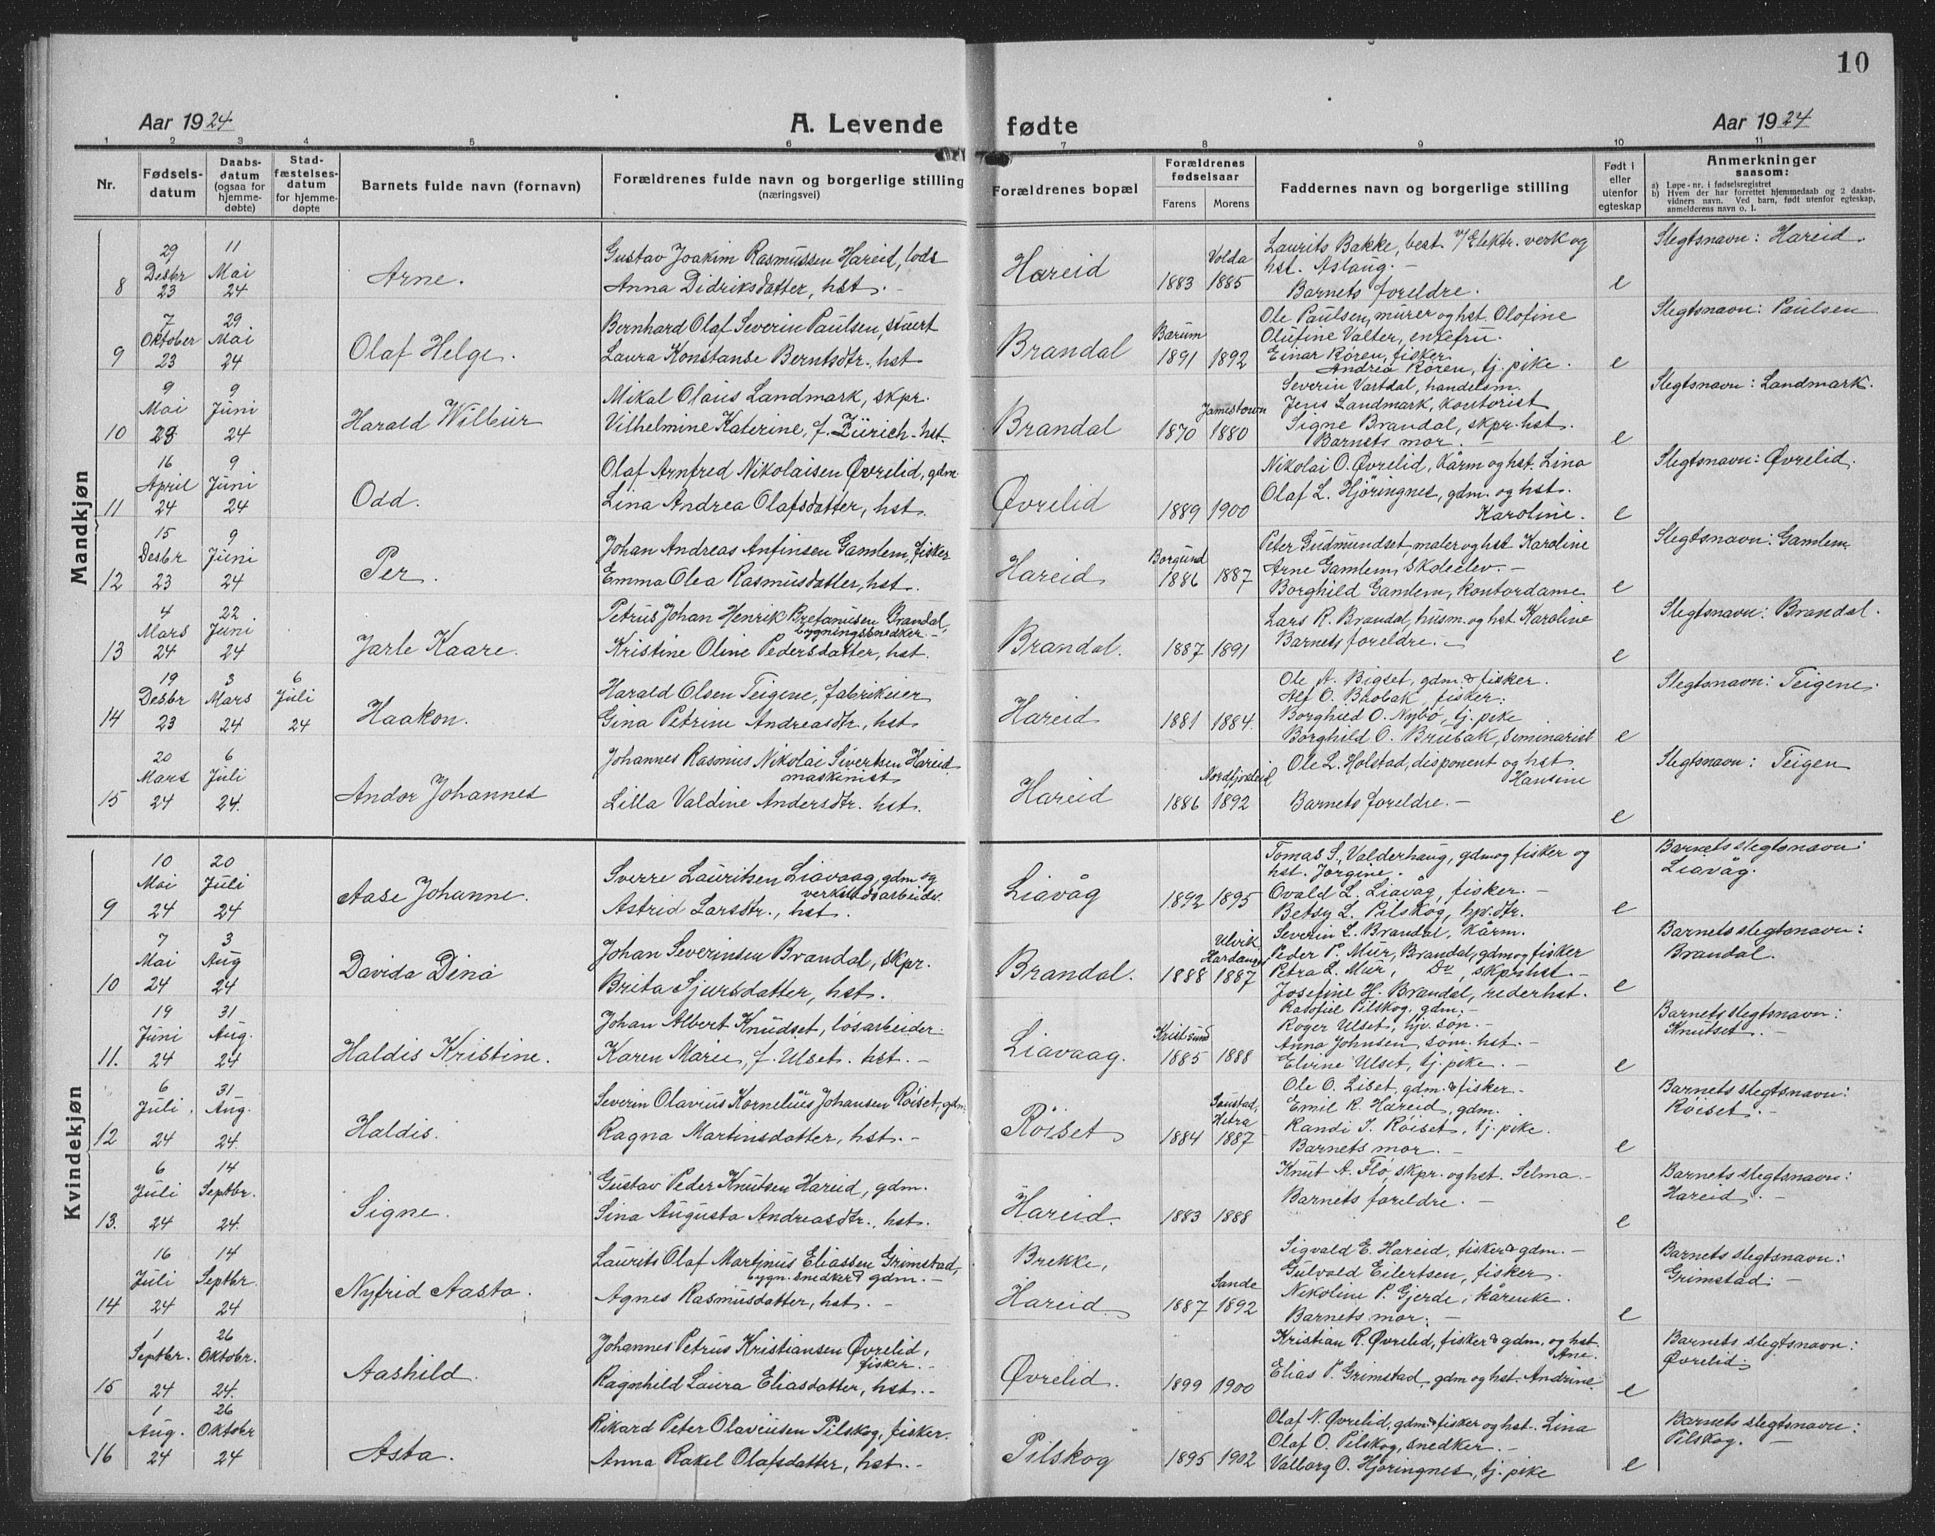 10
Aar 1924 A. Levende fødte Aar 1924
1 2 3 4 5 6 7 8 9 10 11
Nr.
Fødsels-
datum
Daabs-
datum
(ogsaa for
hjemme-
døbte)
Stad-
fæstelses-
datum
for hjemme-
døpte
Barnets fulde navn (fornavn)
Forældrenes fulde navn og borgerlige stilling
(næringsvei)
Forældrenes bopæl
Forældrenes
fødselsaar
Farens Morens
Faddernes navn og borgerlige stilling
Født i
eller
utenfor
egteskap
Anmerkninger
saasom:
a) Løpe-nr. i fødselsregistret
b) Hvem der har forrettet hjemmedaab og 2 daabs-
vidners navn. Ved barn, født utenfor egteskap,
anmelderens navn o. l.
Mandkjøn
8
29 Desbr 23
11 Mai 24
Arne.
Gustav Joakim Rasmussen Hareid, lods
Anna Didriksdatter, hst.
Hareid
1883
Volda 1885
Laurits Bakke, best. v/ Elektr. verk og
hst. Aslaug. -
Barnets foreldre.
e
Slegtsnavn: Hareid.
9
7 Oktober 23
29 Mai 24
Olaf Helge.
Bernhard Olaf Severin Paulsen, stuert
Laura Konstanse Berntsdtr., hst
Brandal
Bærum 1891
1892
Ole Paulsen, murer og hst. Olofine
Olufine Valter, enkefru.
Einar Røren, fisker
Andrea Røren, tj. pike.
e
Slegtsnavn: Paulsen
10
9 Mai 23
9 Juni 24
Harald Wilbur
Mikal Olaus Landmark, skpr.
Vilhelmine Katerine, f. Zürich - hst.
Brandal
1870
Jamestown 1880
Severin Vartdal, handelsm.
Jens Landmark, kontorist
Signe Brandal, skpr. hst.
Barnets mor. -
e
Slegtsnavn: Landmark.
11
16 April 24
9 Juni 24
Odd.
Olaf Arnfred Nikolaisen Øvrelid, gdm
Lina Andrea Olafsdatter, hst.
Øvrelid
1889 1900
Nikolai O. Øvrelid, kårm og hst. Lina
Olaf L. Hjøringnes, gdm. og hst.
Karoline.
e
Slegtsnavn: Øvrelid.
12
15 Desbr 23
9 Juni 24
Per.
Johan Andreas Anfinsen Gamlem, fisker
Emma Olea Rasmusdatter, hst.
Hareid
Borgund 1886
1887
Peter Gudmundset, maler og hst Karoline
Arne Gamlem, skoleelev. -
Borghild Gamlem, kontordame
e
Slegtsnavn: Gamlem
13
4 Mars 24
22 Juni 24
Jarle Kaare.
Petrus Johan Henrik Brefanusen Brandal,
bygningssnedker -
Kristine Oline Pedersdatter, hst.
Brandal.
1887 1891
Lars R. Brandal, husm. og hst. Karoline
Barnets foreldre. -
e
Slegtsnavn: Brandal.
14
19 Desbr 23
3 Mars 24
6 Juli 24
Haakon.
Harald Olsen Teigene, fabrikeier
Gina Petrine Andreasdtr., hst
Hareid
1881 1884.
Ole A. Bigset, gdm. & fisker.
Alf O. Brobak, fisker.
Borghild O. Nybø, tj. pike
Borghild O. Brubak, seminarist
e
Slegtsnavn: Teigene.
15
20 Mars 24
6 Juli 24.
Andor Johannes
Johannes Rasmus Nikolai Sivertsen Hareid
maskinist
Lilla Valdine Andersdtr. hst.
Hareid
1886
Nordfjordeid 1892
Ole L. Holstad, disponent og hst.
Hansine
Barnets foreldre. -
e
Slegtsnavn: Teigen
Kvindekjøn
9
10 Mai 24
20 Juli 24
Aase Johanne.
Sverre Lauritsen Liavaag, gdm og
verkstedsarbeider.
Astrid Larsdtr., hst.
Liavåg
1892 1895
Tomas S. Valderhaug, gdm og fisker og
hst. Jørgine.
Ovald L. Liavåg, fisker. -
Betsy L. Pilskog, hjv. dtr.
e
Barnets slegtsnavn:
Liavåg.
10
7 Mai 24
3 Aug 24
Davida Dina
Johan Severinsen Brandal, skpr.
Brita Sjursdatter, hst.
Brandal.
1888
Ulvik, Hardanger 1887
Severin L. Brandal, kårm.
Peder P. Mur, Brandal, gdm og fisker
Petra L. Mur, Do, skpr. hst. -
Josefine H. Brandal, rederhst.
e
Barnets slegtsnavn:
Brandal.
11.
19 Juni 24
31 Aug. 24
Haldis Kristine.
Johan Albert Knudset, løsarbeider.
Karen Marie, f. Ulset. hst. -
Liavaag.
Kristsund 1885
1888
Rasofiel Pilskog, gdm. -
Roger Ulset, hjv. søn. -
Anna Johnsen, søm. hst. -
Elvine Ulset, tj. pike. -
e
Barnets slegtsnavn:
Knutset. -
12
6 Juli. 24
31 Aug. 24.
Haldis.
Severin Olavius Kornelius Johansen Röiset, gdm.
Ragna Martinsdatter, hst. -
Röiset
1884
Hitra 1887
Ole O. Liset, gdm. & fisker. -
Emil R. Hareid, gdm.
Randi S. Röiset, tj. pike.
Barnets mor. -
e
Barnets slegtsnavn:
Røiset. -
13.
6 Juli 24
14 Septbr. 24.
Signe.
Gustav Peder Knutsen Hareid, gdm.
Sina Augusta Andreasdtr., hst.
Hareid.
1883 1888
Knut A. Flø, skpr. og hst. Selma -
Barnets foreldre. -
e
Barnets slegtsnavn:
Hareid. -
14
16 Juli 24
14 Septbr. 24
Nyfrid Aasta.
Laurits Olaf Martinus Eliassen Grimstad,
bygn. snedker & gdm. -
Agnes Rasmusdatter, hst. -
Brekke,
Hareid
1887
Sande 1892
Sigvald E. Hareid, fisker & gdm. -
Gulvald Eilertsen, fisker.
Nikoline P. Gjerde, kårenke.
Barnets mor. -
e
Barnets slegtsnavn:
Grimstad. -
15
1 Septbr. 24
26 Oktober. 24.
Aashild.
Johannes Petrus Kristiansen Øvrelid,
fisker. -
Ragnhild Laura Eliasdatter, hst. -
Øvrelid.
1899 1900
Kristian R. Øvrelid, fisker & gdm. og hst.
Ane.
Elias P. Grimstad, gdm og hst. Andrine.
e
Barnets slegtsnavn:
Øvrelid
16
1 Aug. 24
26 Oktober 24
Asta.
Rikard Peter Olaviusen Pilskog, fisker.
Anna Rakel Olafsdatter, hst. -
Pilskog
1895 1902
Olaf N. Øvrelid, gdm & fisker og hst. Lina
Olaf O. Pilskog, snedker. -
Valborg O. Hjøringnes, tj. pike
e
Barnets slegtsnavn:
Pilskog. -